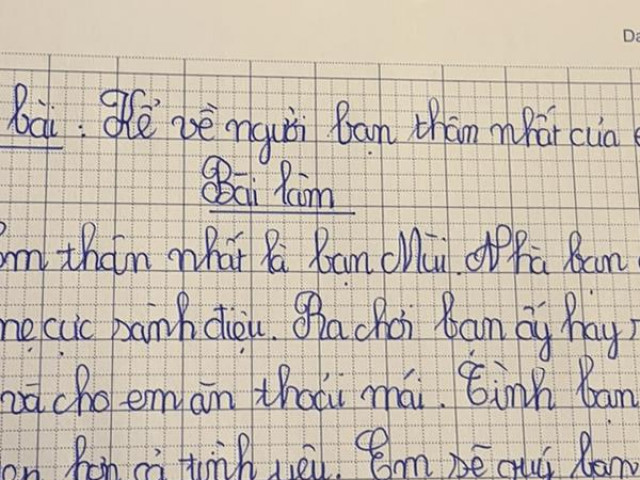 Da
bài : Kể về người bạn thân nhất của e
Bài làm
m thân nhất là bạn Mùi. Nhà bạn
mẹ cực sành điệu. Ra chơi bạn ấy hay
và cho em ăn thoải mái. Tình bạn
ơn hơn cả tình yêu. Em sẽ quý bạn